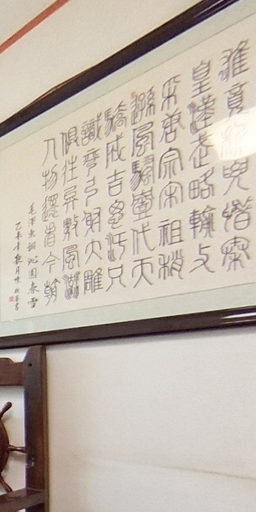 雄竟折腰惜秦
皇漢武略輸文
采唐宗宋祖稍
遜風騷壹代天
驕成吉思汗只
識彎弓射大雕
俱往矣數風流
人物還看今朝
毛澤東詞沁園春雪